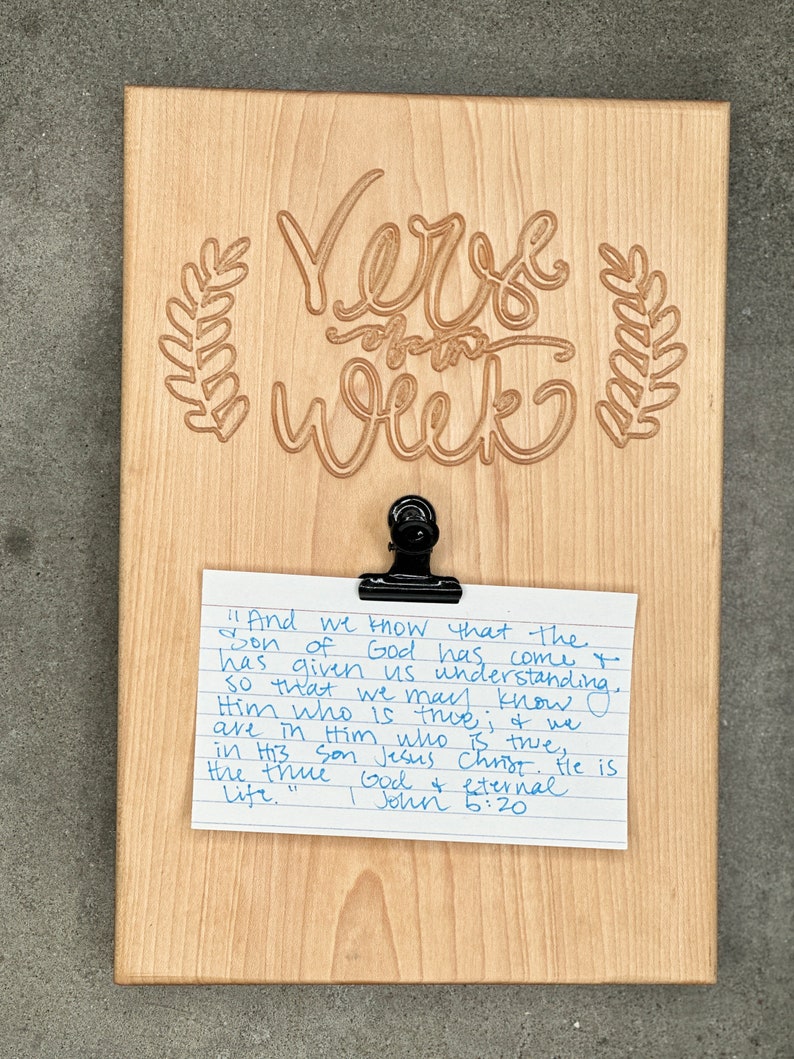 Verse
of the
Week
"And we know that the
Son of God has come &
has given us understanding,
so that we may know
Him who is true; & we
are in Him who is true,
in His Son Jesus Christ. He is
the true God & eternal
Life." 1 John 5:20